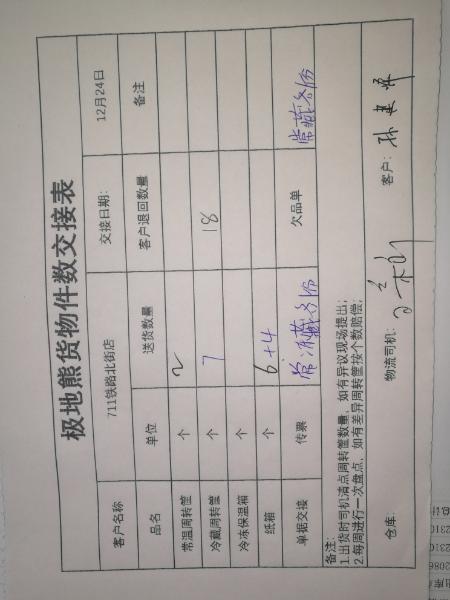 极地熊货物件数交接表
客户名称 711铁路北街店 交接日期: 12月24日
品名 单位 送货数量 客户退回数量 备注
常温周转筐 个 2
冷藏周转筐 个 7 18
冷冻保温箱 个
纸箱 个 6+4
单据交接 传票 常冻藏各1份 欠品单 常藏各1份
备注:
1.出货时司机清点周转筐数量，如有异议现场提出;
2.每周进行一次盘点，如有差异周转筐按个数赔偿;
仓库: 物流司机: 客户: